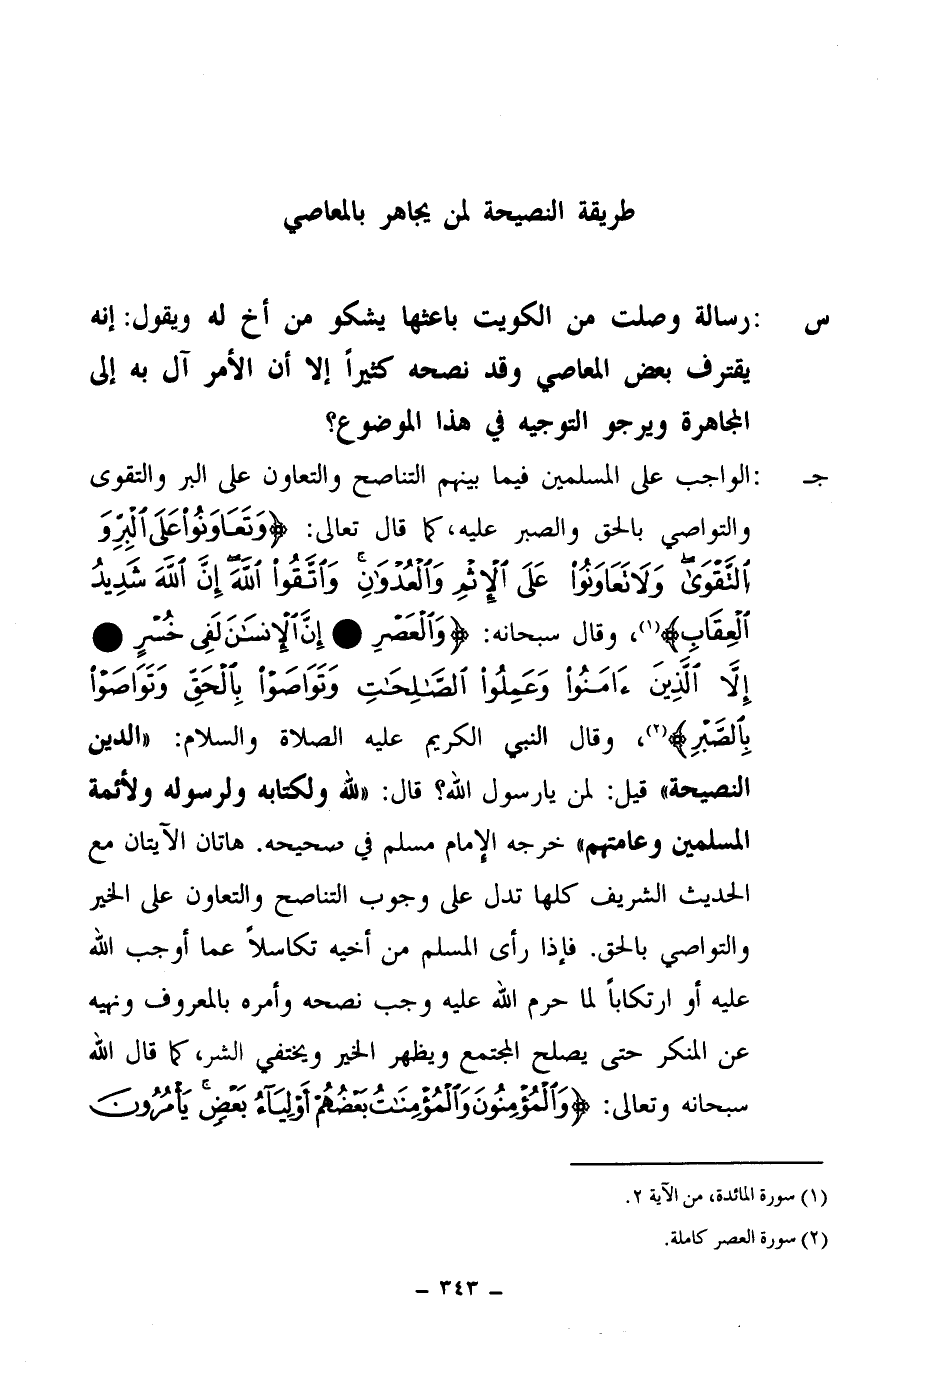 طريقة النصيحة لمن يجاهر بالمعاصي
س :رسالة وصلت من الكويت باعثها يشكو من أخ له ويقول: إنه
يقترف بعض المعاصي وقد نصحه كثيراً إلا أن الأمر آل به إلى
المجاهرة ويرجو التوجيه في هذا الموضوع؟
جـ :الواجب على المسلمين فيما بينهم التناصح والتعاون على البر والتقوى
والتواصي بالحق والصبر عليه، كما قال تعالى: ﴿وَتَعَاوَنُوا۟ عَلَى ٱلْبِرِّ وَ
ٱلتَّقْوَىٰ ۖ وَلَا تَعَاوَنُوا۟ عَلَى ٱلْإِثْمِ وَٱلْعُدْوَٰنِ ۚ وَٱتَّقُوا۟ ٱللَّهَ ۖ إِنَّ ٱللَّهَ شَدِيدُ
ٱلْعِقَابِ﴾(١)، وقال سبحانه: ﴿وَٱلْعَصْرِ ● إِنَّ ٱلْإِنسَـٰنَ لَفِى خُسْرٍ ●
إِلَّا ٱلَّذِينَ ءَامَنُوا۟ وَعَمِلُوا۟ ٱلصَّـٰلِحَـٰتِ وَتَوَاصَوْا۟ بِٱلْحَقِّ وَتَوَاصَوْا۟
بِٱلصَّبْرِ﴾(٢)، وقال النبي الكريم عليه الصلاة والسلام: «الدين
النصيحة» قيل: لمن يارسول الله؟ قال: «لله ولكتابه ولرسوله ولأئمة
المسلمين وعامتهم» خرجه الإمام مسلم في صحيحه. هاتان الآيتان مع
الحديث الشريف كلها تدل على وجوب التناصح والتعاون على الخير
والتواصي بالحق. فإذا رأى المسلم من أخيه تكاسلاً عما أوجب الله
عليه أو ارتكاباً لما حرم الله عليه وجب نصحه وأمره بالمعروف ونهيه
عن المنكر حتى يصلح المجتمع ويظهر الخير ويختفي الشر، كما قال الله
سبحانه وتعالى: ﴿وَٱلْمُؤْمِنُونَ وَٱلْمُؤْمِنَـٰتُ بَعْضُهُمْ أَوْلِيَآءُ بَعْضٍ ۚ يَأْمُرُونَ
(١) سورة المائدة، من الآية ٢.
(٢) سورة العصر كاملة.
– ٣٤٣ –